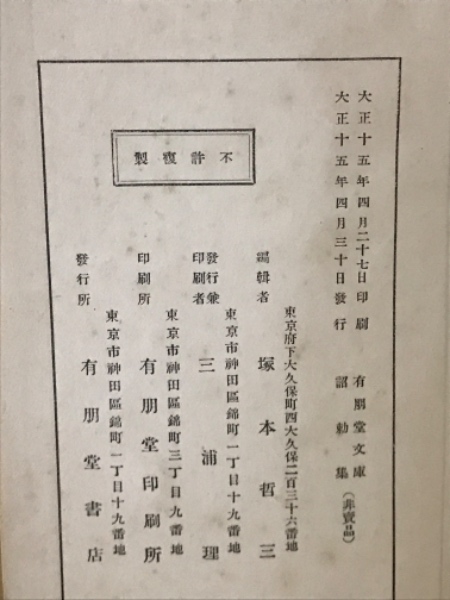 大正十五年四月二十七日印刷
大正十五年四月三十日發行
有朋堂文庫
詔勅集
(非賣品)
不許複製
東京府下大久保町西大久保二百三十六番地
編輯者 塚本哲三
東京市神田區錦町一丁目十九番地
發行兼印刷者 三浦理
東京市神田區錦町三丁目九番地
印刷所 有朋堂印刷所
東京市神田區錦町一丁目十九番地
發行所 有朋堂書店